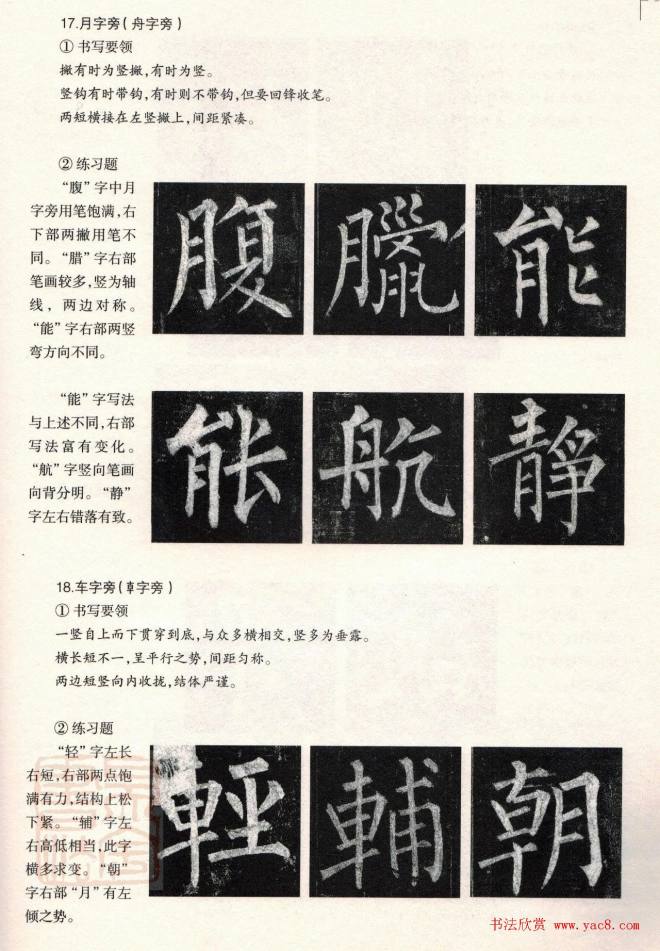 17.月字旁(舟字旁)
①书写要领
撇有时为竖撇,有时为竖。
竖钩有时带钩,有时则不带钩,但要回锋收笔。
两短横接在左竖撇上,间距紧凑。
②练习题
“腹”字中月
字旁用笔饱满,右
下部两撇用笔不
同。“腊”字右部
笔画较多,竖为轴
线，两边对称。
“能”字右部两竖
弯方向不同。
腹 臘 能
“能”字写法
与上述不同,右部
写法富有变化。
“航”字竖向笔画
向背分明。“静”
字左右错落有致。
能 航 靜
18.车字旁(車字旁)
①书写要领
一竖自上而下贯穿到底,与众多横相交,竖多为垂露。
横长短不一,呈平行之势,间距匀称。
两边短竖向内收拢,结体严谨。
②练习题
“轻”字左长
右短,右部两点饱
满有力,结构上松
下紧。“辅”字左
右高低相当,此字
横多求变。“朝”
字右部“月”有左
倾之势。
輕 輔 朝
书法欣赏 www.yac8.com